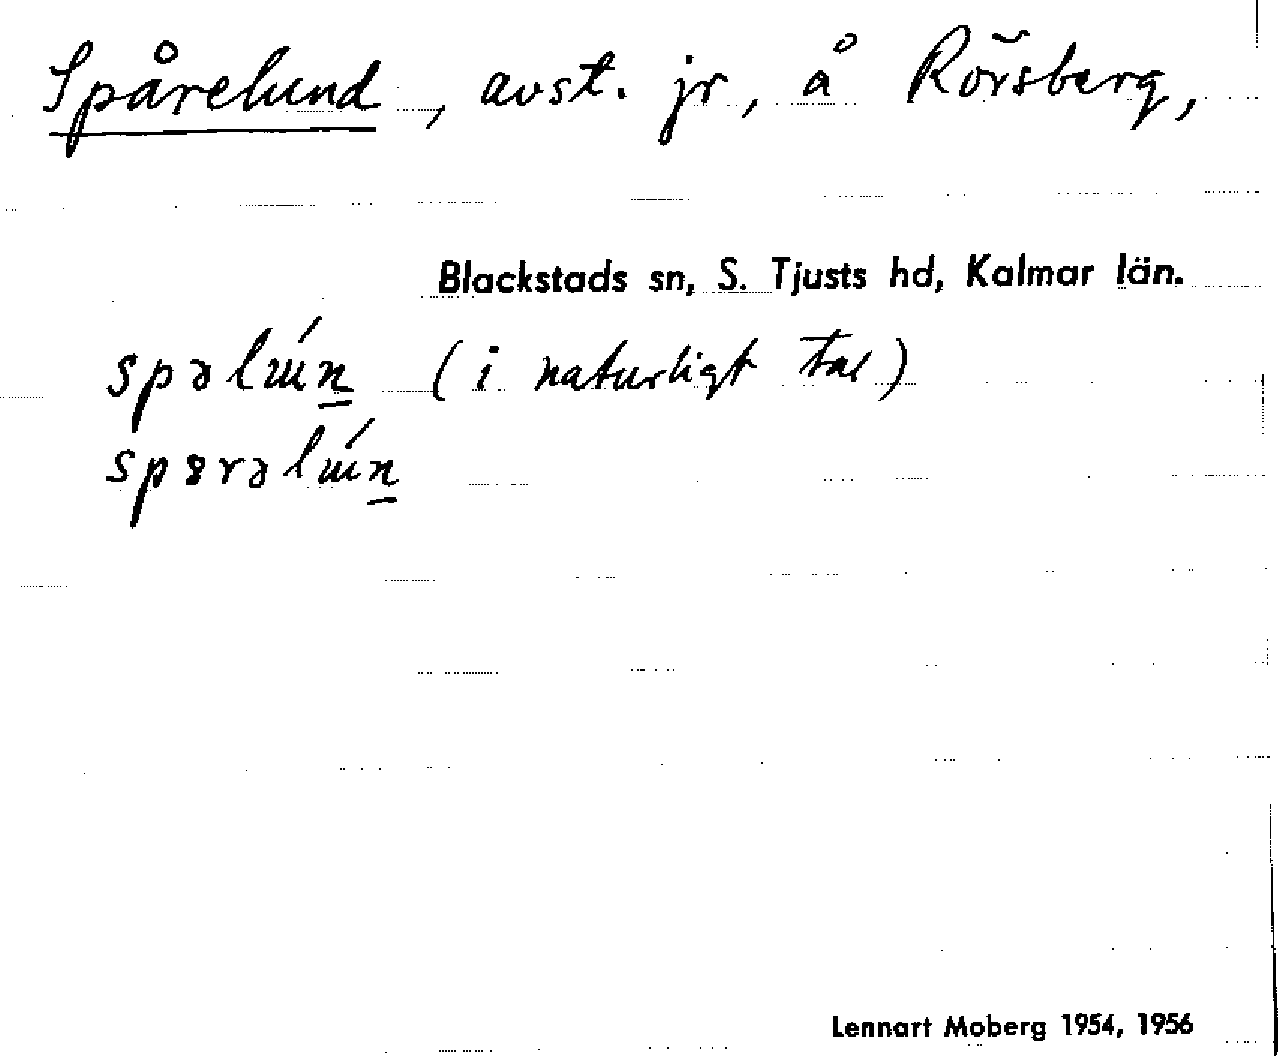 Spårelund, avst. jr, å Rörsberg,
Blackstads sn, S. Tjusts hd, Kalmar län.
spəlɯ́n̲ (i naturligt tal)
spɞrəlɯ́n̲
Lennart Moberg 1954, 1956